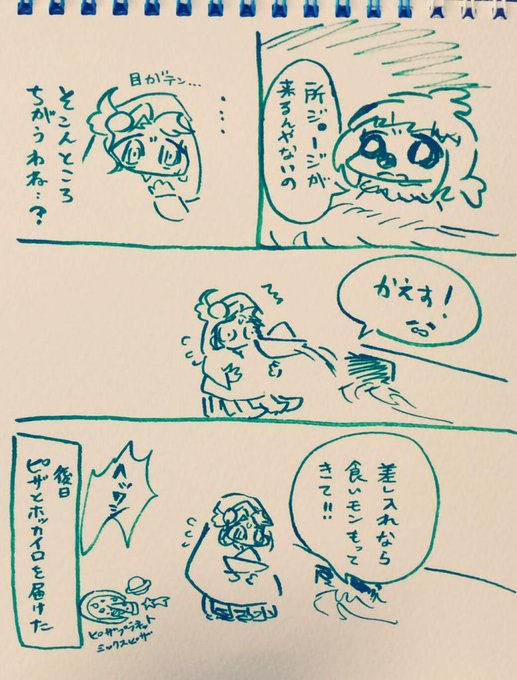 所ジ●ージが
来るんやないの
・・・・
目がテン…
そこんところ
ちがうわね…?
かえす!
差し入れなら
食いモンもって
きて!!
ヘックシ
ピザプラネット
ミックスピザ
後日
ピザとホッカイロを届けた